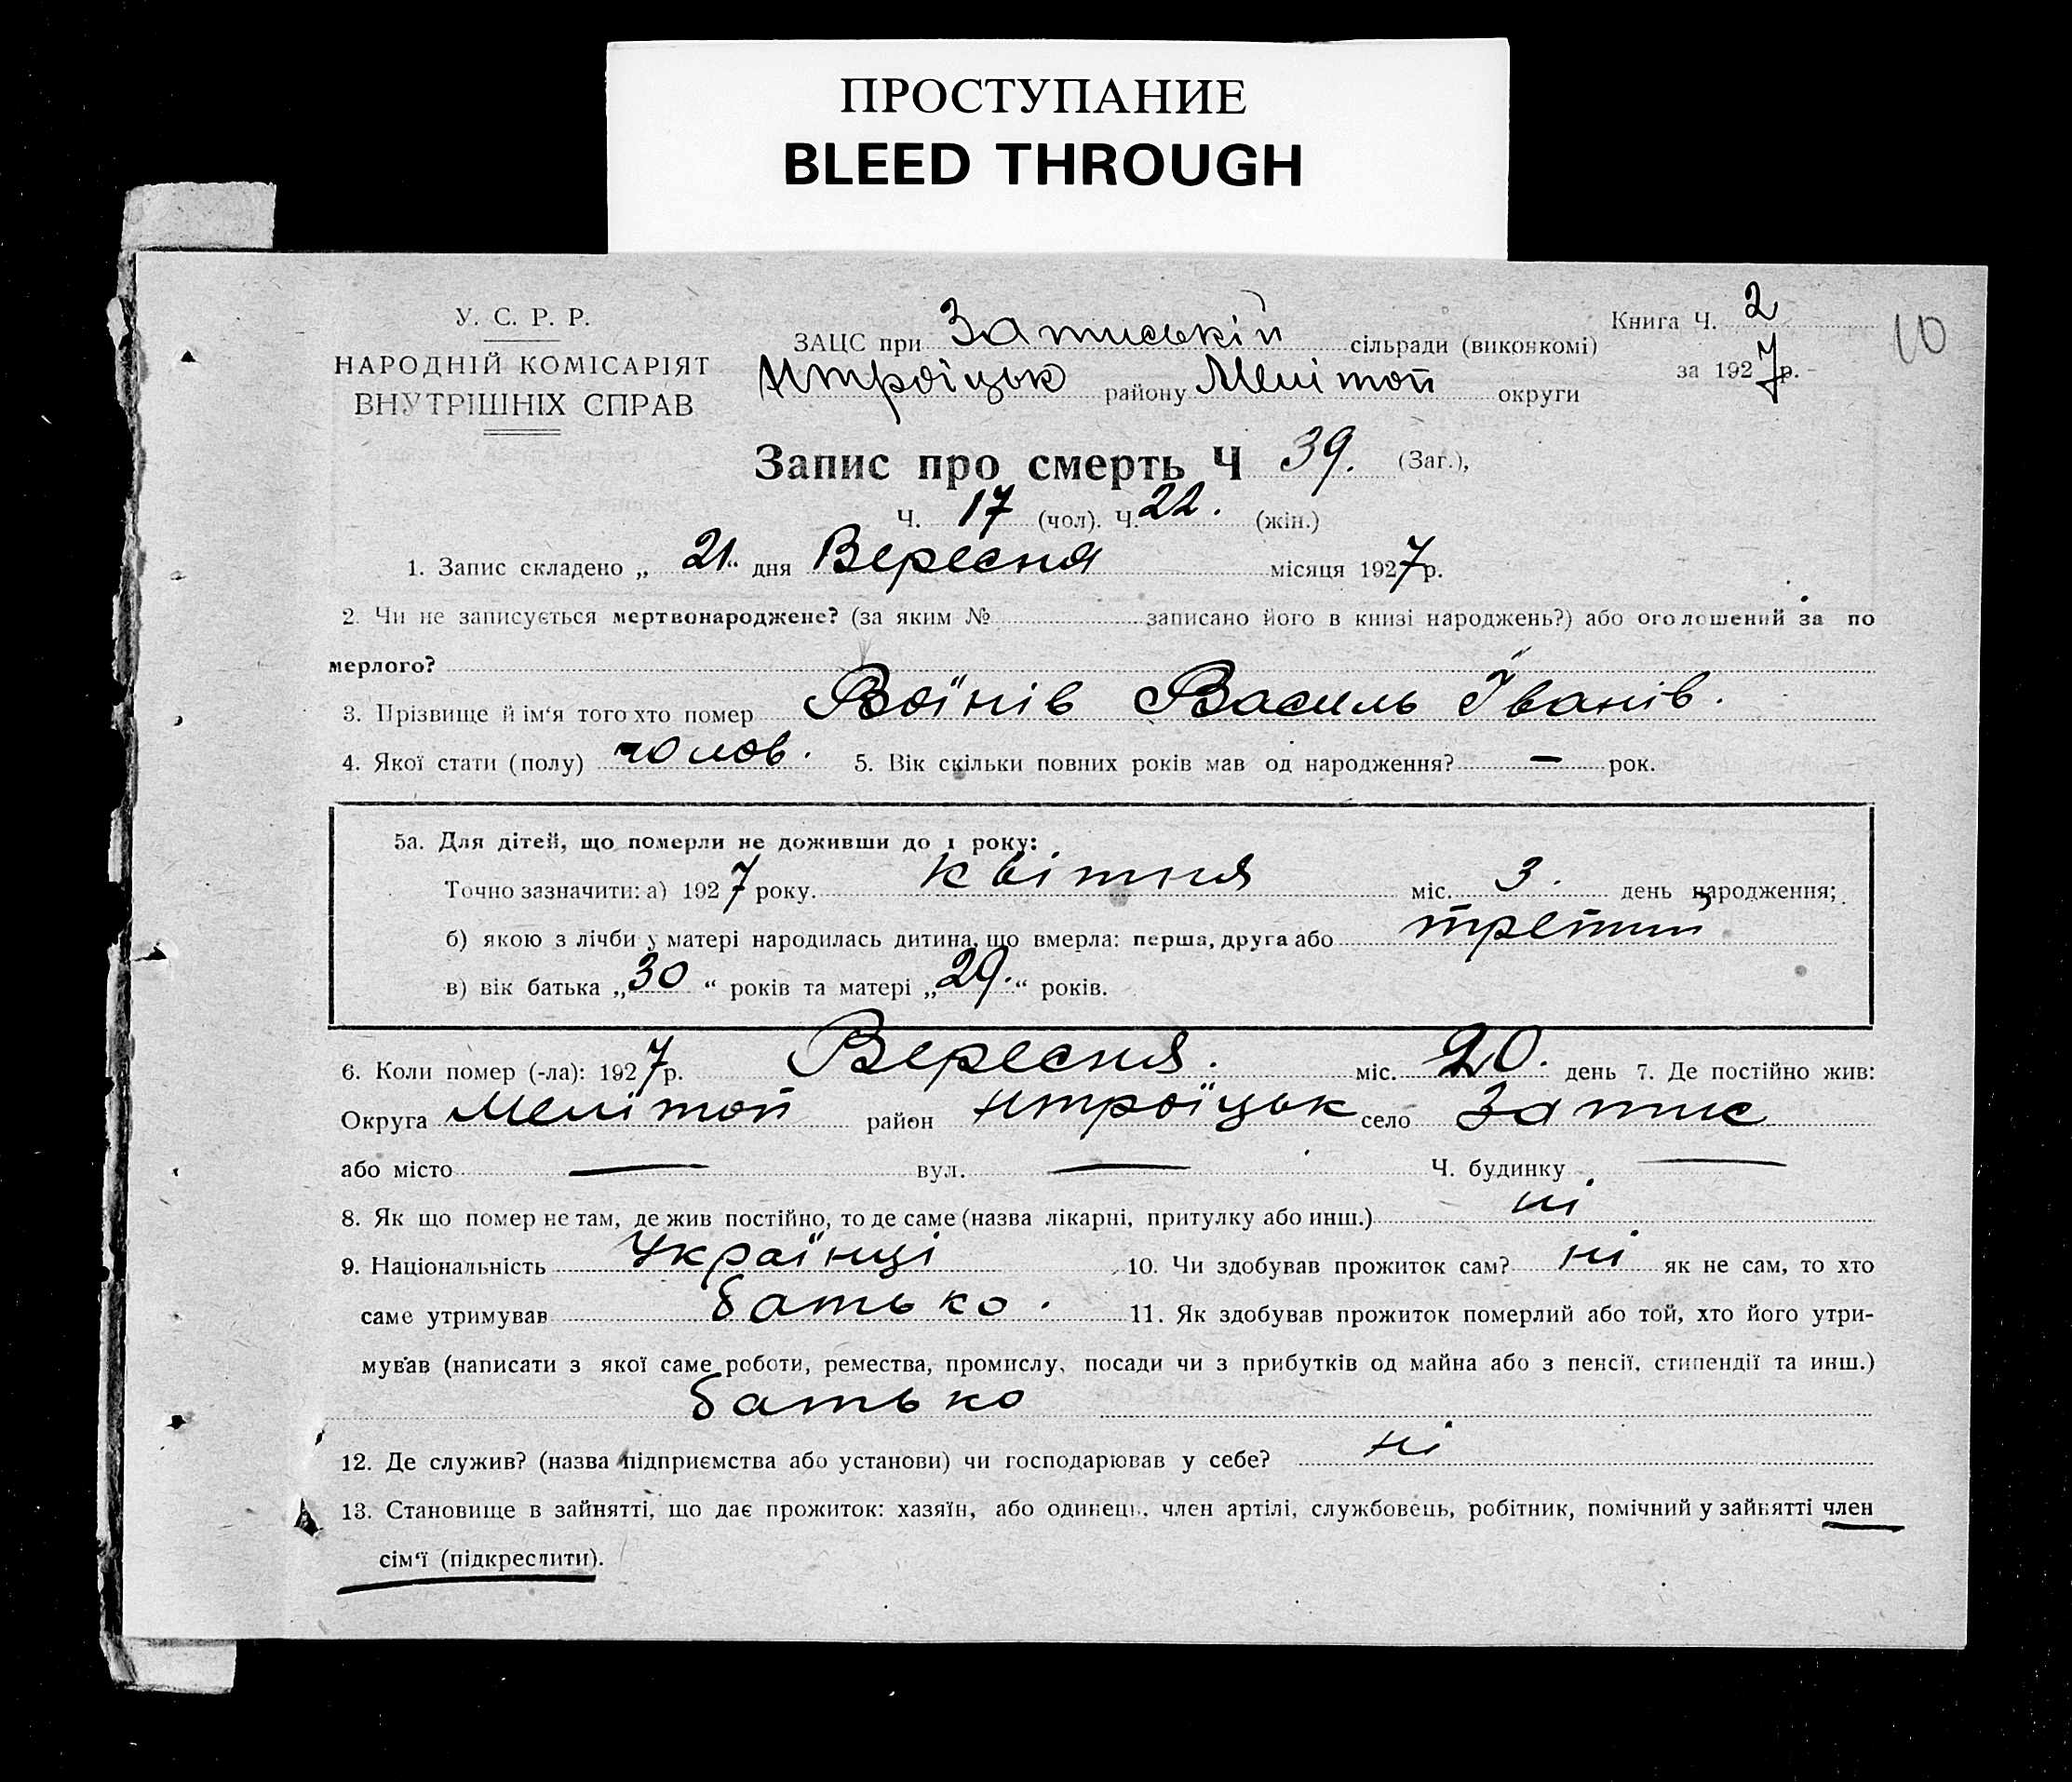 ПРОСТУПАНИЕ
BLEED THROUGH
У. С. Р. Р.
НАРОДНІЙ КОМІСАРІЯТ
ВНУТРІШНІХ СПРАВ
Книга Ч. 2
за 1927 р.
10
ЗАЦС при Затиській сільради (виконкомі)
Нтроїцьк району Мелітоп округи
Запис про смерть Ч 39. (Заг.),
Ч. 17 (чол). Ч. 22. (жін.)
1. Запис складено „ 21 “ дня Вересня місяця 1927 р.
2. Чи не записується мертвонароджене? (за яким № записано його в книзі народжень?) або оголошений за по
мерлого?
3. Прізвище й ім'я того хто помер Воїнів Василь Іванів.
4. Якої стати (полу) чолов. 5. Вік скільки повних років мав од народження? — рок.
5а. Для дітей, що померли не доживши до 1 року:
Точно зазначити: а) 1927 року. Квітня міс. 3. день народження;
б) якою з лічби у матері народилась дитина, що вмерла: перша, друга або третий
в) вік батька „ 30 “ років та матері „ 29. “ років.
6. Коли помер (-ла): 1927 р. Вересня. міс. 20. день 7. Де постійно жив:
Округа Мелітоп район Нтроїцьк село Затис
або місто — вул. — Ч. будинку —
8. Як що помер не там, де жив постійно, то де саме (назва лікарні, притулку або инш.) ні
9. Національність Українці 10. Чи здобував прожиток сам? ні як не сам, то хто
саме утримував батько. 11. Як здобував прожиток померлий або той, хто його утри-
мував (написати з якої саме роботи, ремества, промислу, посади чи з прибутків од майна або з пенсії, стипендії та инш.)
батько
12. Де служив? (назва підприємства або установи) чи господарював у себе? ні
13. Становище в зайнятті, що дає прожиток: хазяїн, або одинець, член артілі, службовець, робітник, помічний у зайнятті член
сім'ї (підкреслити).